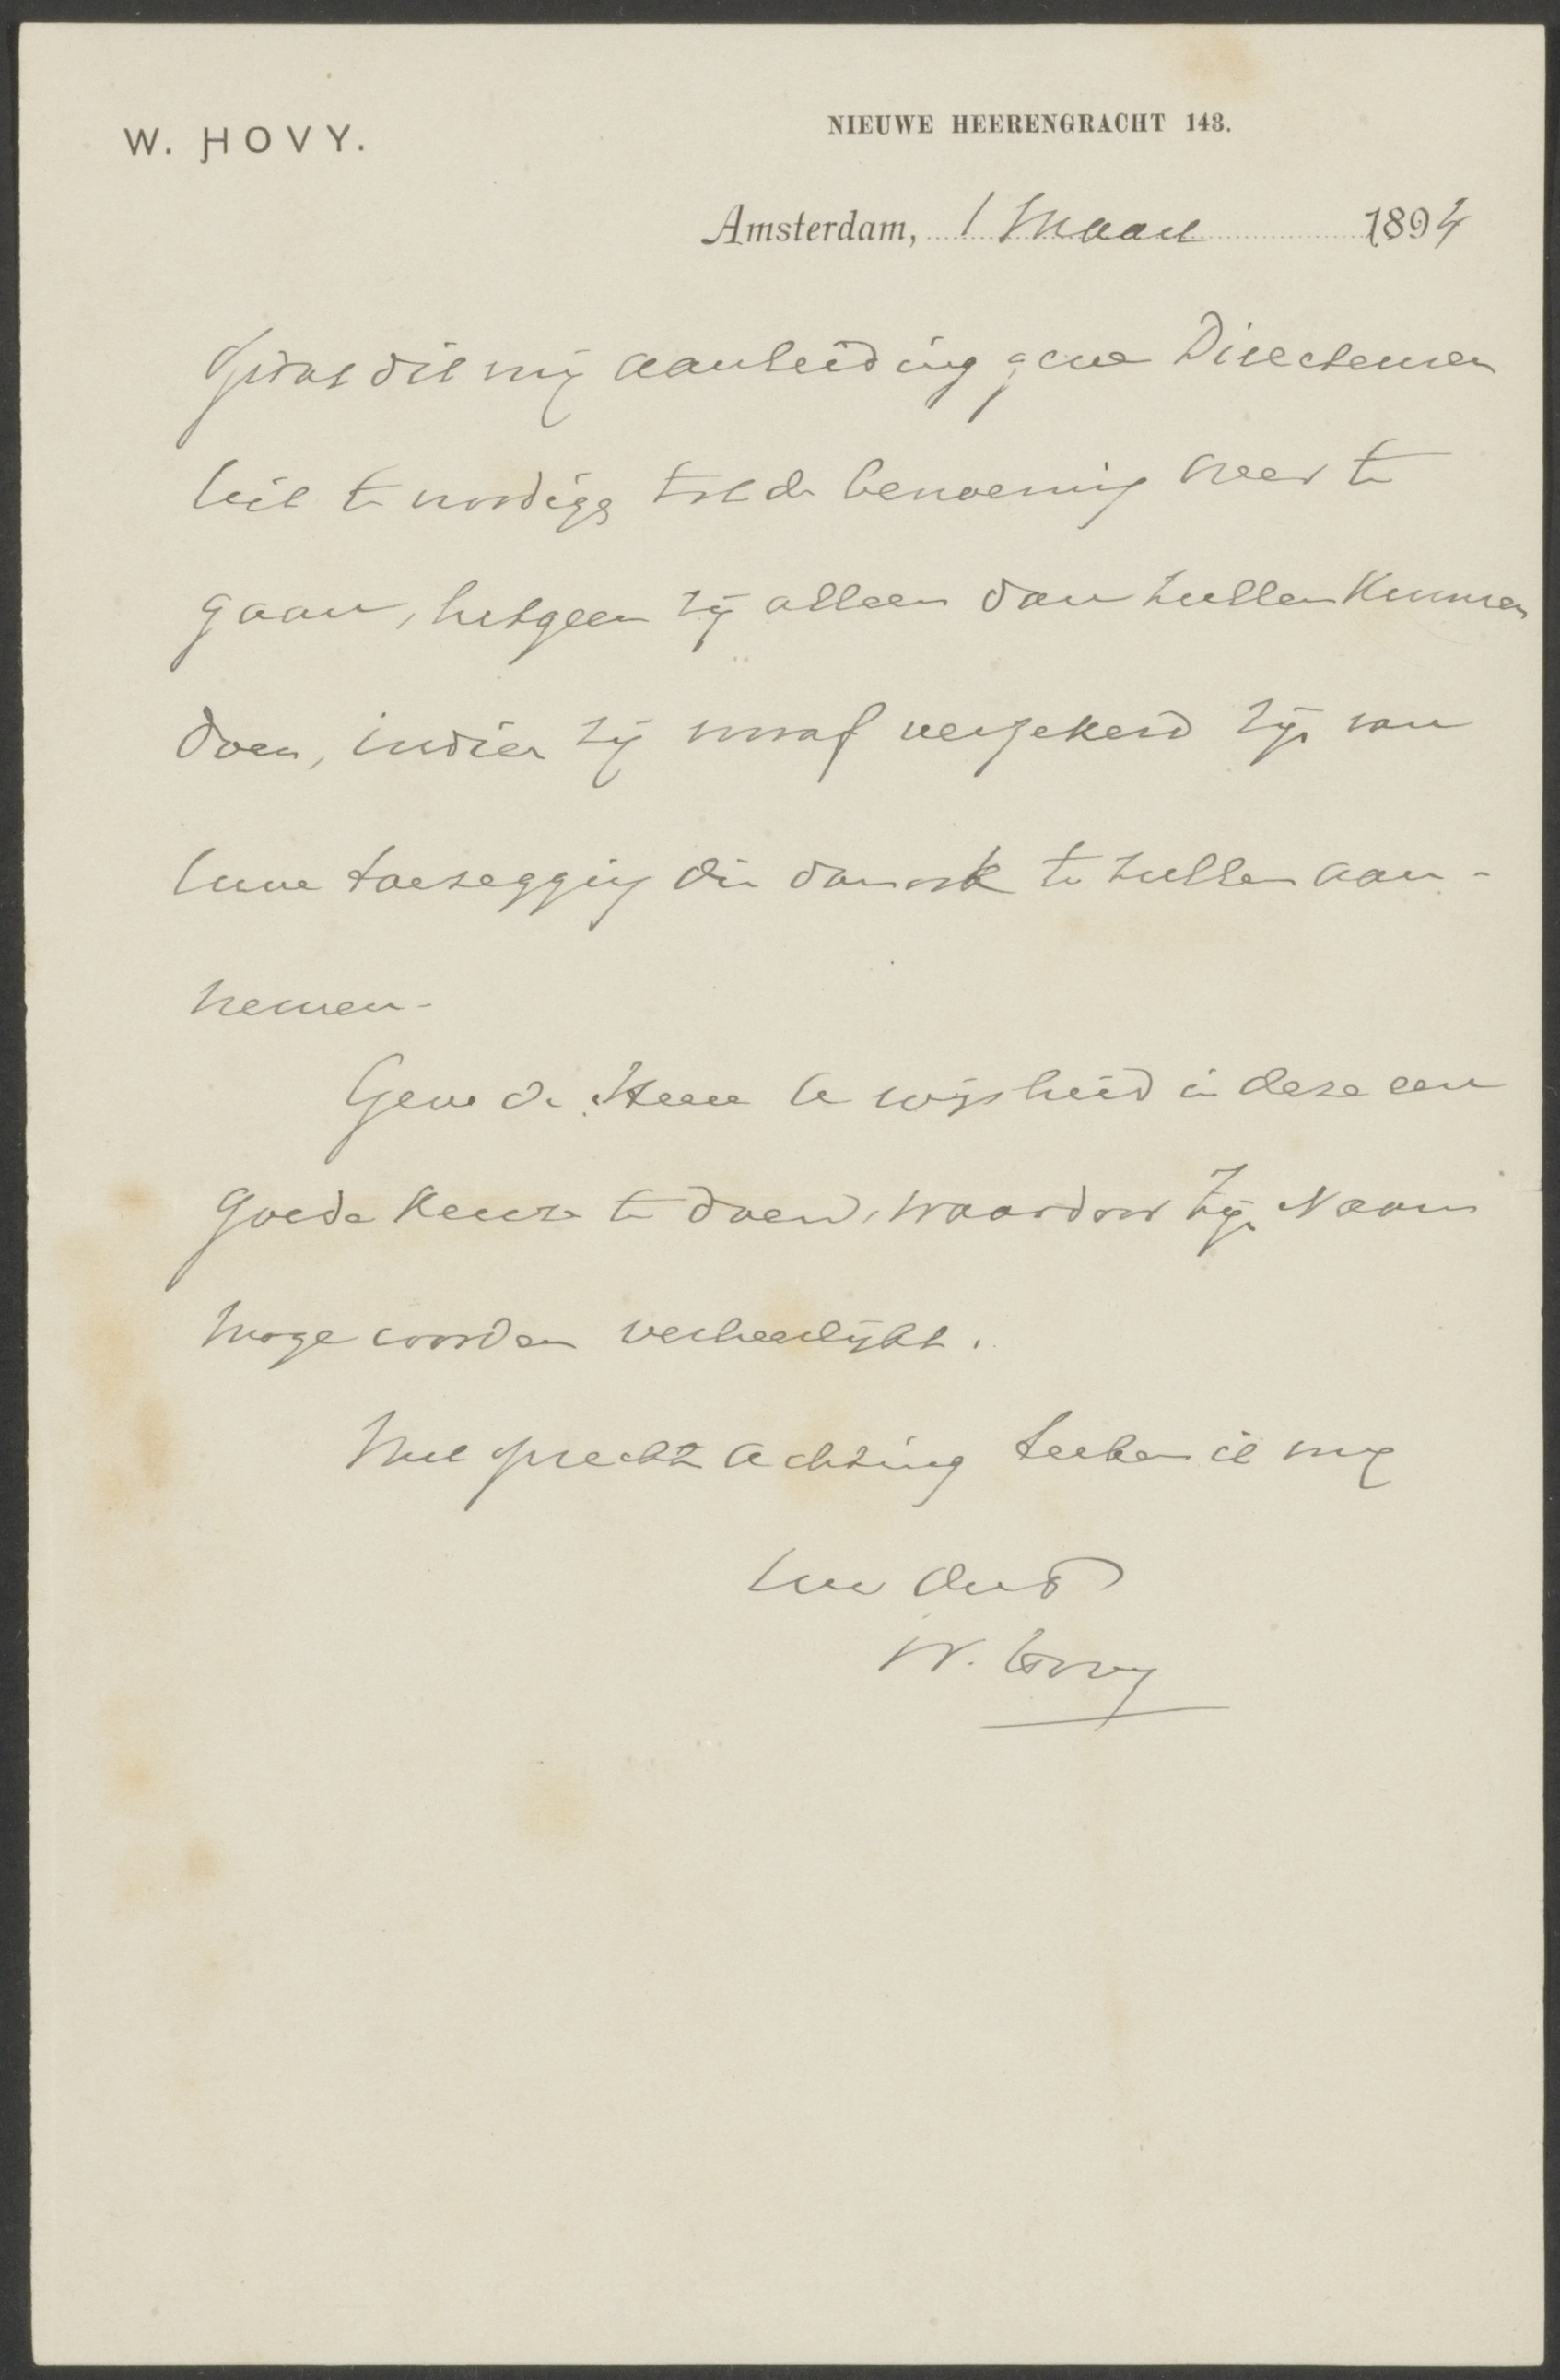 W. HOVY.
NIEUWE HEERENGRACHT 143.
Amsterdam, 1 Maart 1894
dit mij aanleiding geve Directeuren
uit te noodigen tot de benoeming over te
gaan, hetgeen zij alleen dan zullen kunnen
doen, indien zij vooraf verzekerd zijn van
Uwe toezegging die dan ook te zullen aan-
nemen.
Geve de Heere U wijsheid in deze een
goede keuze te doen, waardoor Zijn Naam
moge worden verheerlijkt.
Met oprechte achting teeken ik mij
Uw dw
W. Hovy